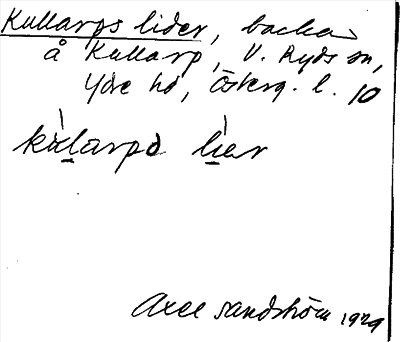 Kullarps lider, backa
å Kullarp, V. Ryds sn,
Ydre hd, Österg. l. 10
kùlarps lìer
Axel Sandström 1929